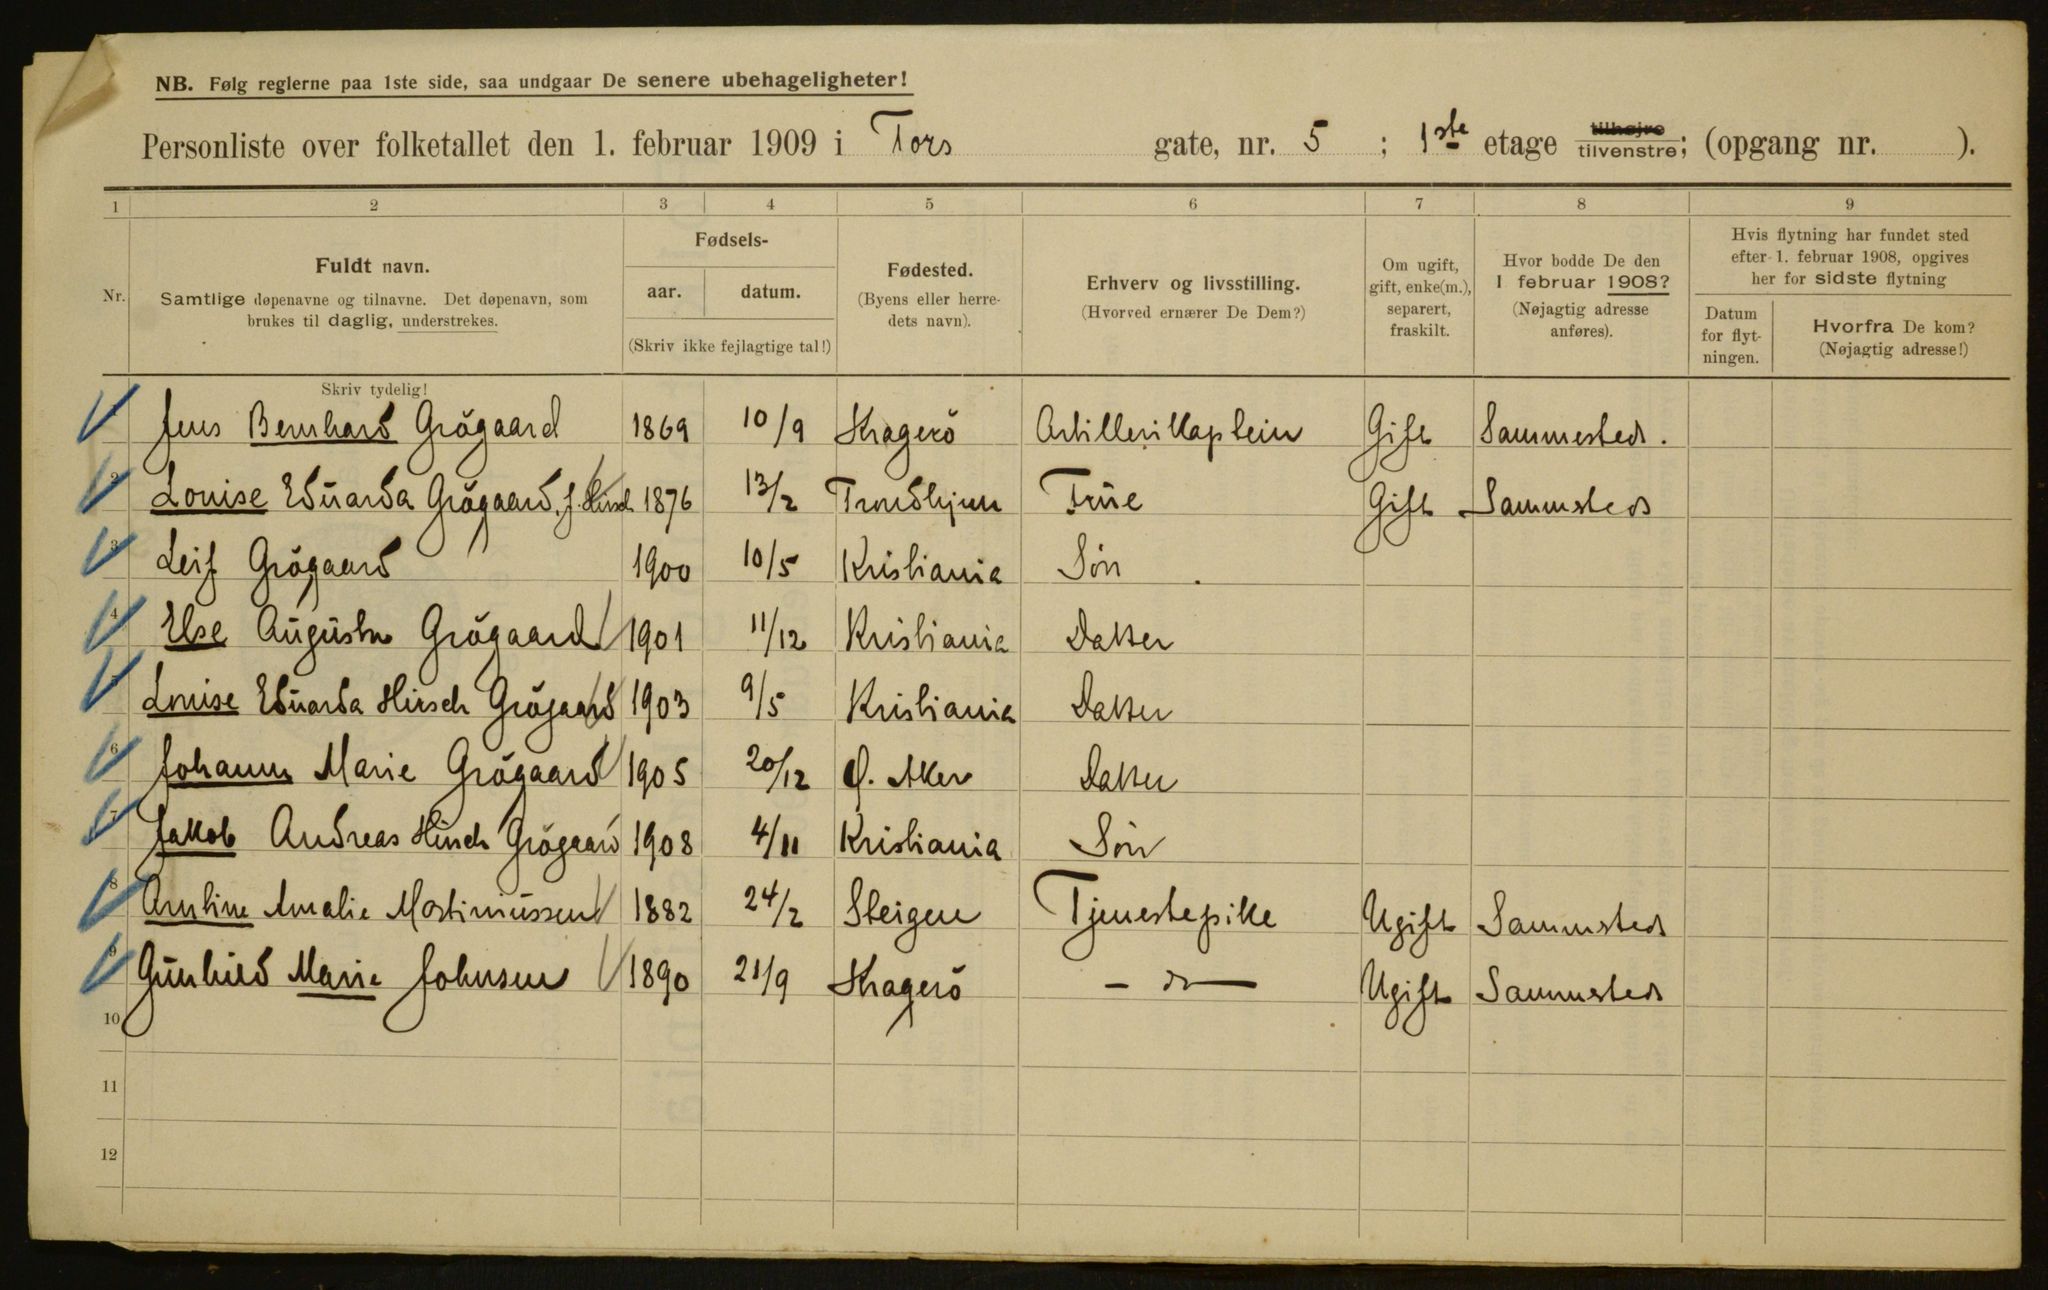 NB. Følg reglerne paa 1ste side, saa undgaar De senere ubehageligheter!
Personliste over folketallet den 1. februar 1909 i Tors gate, nr. 5 ; 1ste etage tilhøjre tilvenstre; (opgang nr. ).
1 2 3 4 5 6 7 8 9
Nr.
Fuldt navn.
Samtlige døpenavne og tilnavne. Det døpenavn, som
brukes til daglig, understrekes.
Fødsels-
aar. datum.
(Skriv ikke fejlagtige tal!)
Fødested.
(Byens eller herre-
dets navn).
Erhverv og livsstilling.
(Hvorved ernærer De Dem?)
Om ugift,
gift, enke(m.),
separert,
fraskilt.
Hvor bodde De den
1 februar 1908?
(Nøjagtig adresse
anføres).
Hvis flytning har fundet sted
efter 1. februar 1908, opgives
her for sidste flytning
Datum
for flyt-
ningen.
Hvorfra De kom?
(Nøjagtig adresse!)
Skriv tydelig!
1 Jens Bernhard Grögaard 1869 10/9 Kragerö Artillerikaptein Gift Sammesteds.
2 Louise Eduarda Grögaard, f. Hirsch 1876 13/2 Trondhjem Frue Gift Sammesteds
3 Leif Grögaard 1900 10/5 Kristiania Sön
4 Else Augusta Grögaard 1901 11/12 Kristiania Datter
5 Louise Eduarda Hirsch Grögaard 1903 9/5 Kristiania Datter
6 Johanne Marie Grögaard 1905 20/12 Ø. Aker Datter
7 Jakob Andreas Hirsch Grögaard 1908 4/11 Kristiania Sön
8 Amalie Mortinussen 1882 24/2 Steigen Tjenestepike Ugift Sammesteds
9 Gunhild Marie Johnsen 1890 21/9 Kragerö - do - Ugift Sammesteds
10
11
12